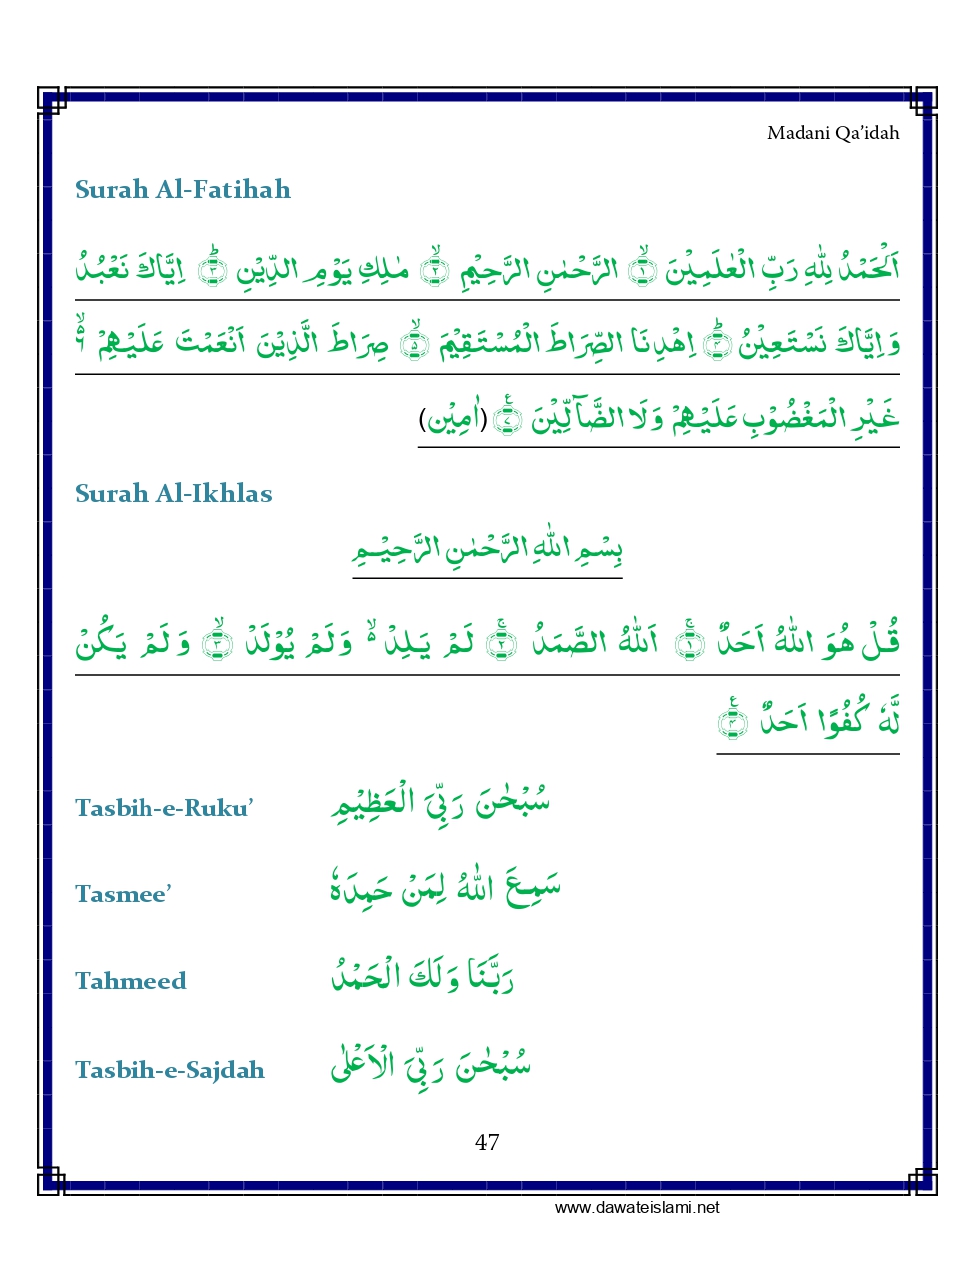 Madani Qa'idah
Surah Al-Fatihah
اَلْحَمْدُ لِلّٰهِ رَبِّ الْعٰلَمِيْنَ ۙ﴿۱﴾ الرَّحْمٰنِ الرَّحِيْمِ ۙ﴿۲﴾ مٰلِكِ يَوْمِ الدِّيْنِ ؕ﴿۳﴾ اِيَّاكَ نَعْبُدُ
وَ اِيَّاكَ نَسْتَعِيْنُ ؕ﴿۴﴾ اِهْدِنَا الصِّرَاطَ الْمُسْتَقِيْمَ ۙ﴿۵﴾ صِرَاطَ الَّذِيْنَ اَنْعَمْتَ عَلَيْهِمْ ۙ۬ۦ
غَيْرِ الْمَغْضُوْبِ عَلَيْهِمْ وَ لَا الضَّآلِّيْنَ ﴿۷﴾ (اٰمِيْن)
Surah Al-Ikhlas
بِسْمِ اللّٰهِ الرَّحْمٰنِ الرَّحِيْمِ
قُلْ هُوَ اللّٰهُ اَحَدٌ ۚ﴿۱﴾ اَللّٰهُ الصَّمَدُ ۚ﴿۲﴾ لَمْ يَلِدْ ۙ۬ وَ لَمْ يُوْلَدْ ۙ﴿۳﴾ وَ لَمْ يَكُنْ
لَّهٗ كُفُوًا اَحَدٌ ﴿۴﴾
Tasbih-e-Ruku' سُبْحٰنَ رَبِّیَ الْعَظِيْمِ
Tasmee' سَمِعَ اللّٰهُ لِمَنْ حَمِدَهٗ
Tahmeed رَبَّنَا وَلَكَ الْحَمْدُ
Tasbih-e-Sajdah سُبْحٰنَ رَبِّیَ الْاَعْلٰی
47
www.dawateislami.net